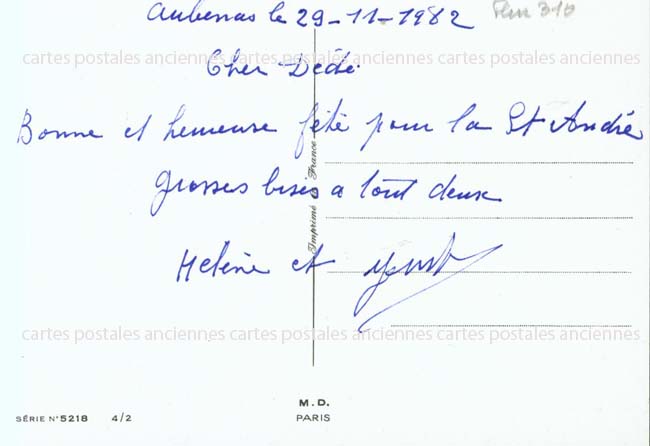 Aubenas le 29-11-1982
cartes postales anciennes cartes postales anciennes cartes postales anciennes
Cher Dédé
Bonne et heureuse fête pour la St André
grosses bises a tout deux
Imprimé France
Helène et
cartes postales anciennes cartes postales anciennes cartes postales anciennes
M.D.
PARIS
SÉRIE N°5218 4/2